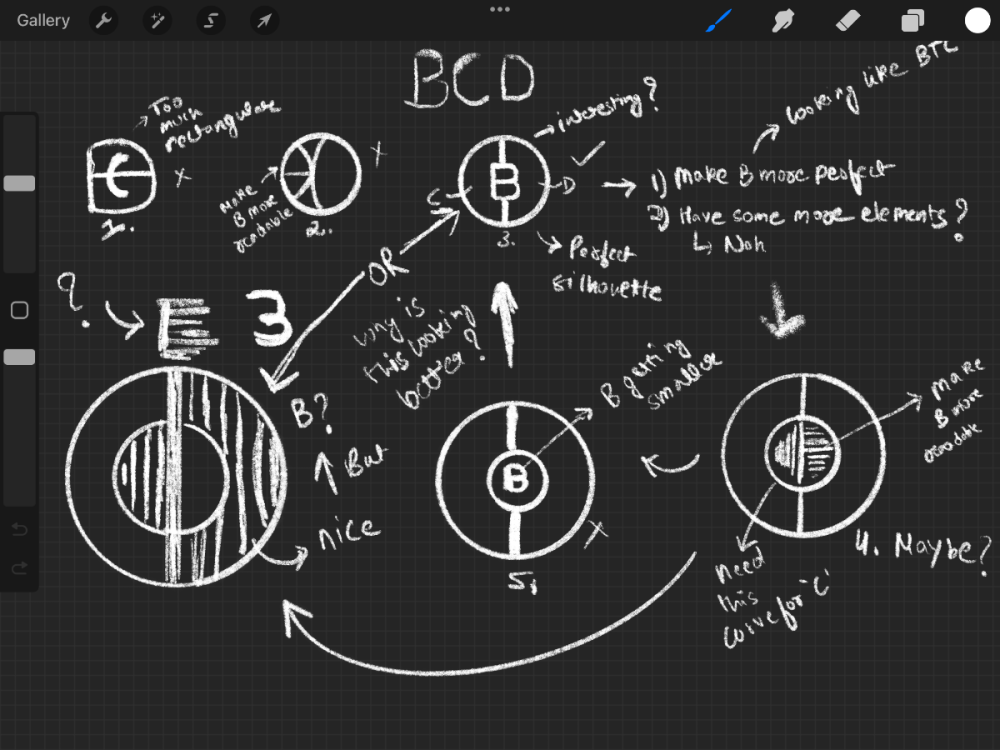 Gallery
BCD
Too
much
rectangular
x
1.
Make
B more
readable
x
2.
interesting?
C
B
D
3.
Perfect
silhouette
looking like BTC
1) Make B more perfect
2) Have some more elements?
Nah
OR
?
E 3
why is
this looking
better?
B getting
smaller
Make
B more
readable
B?
But
nice
B
x
5.
Need
this
curve for 'C'
4. Maybe?